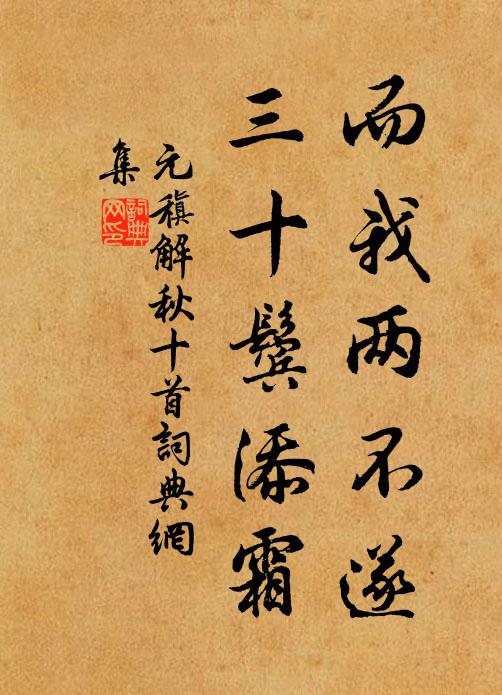 而我两不遂
三十鬓添霜
元稹解秋十首詞典網
集
詞典
网印